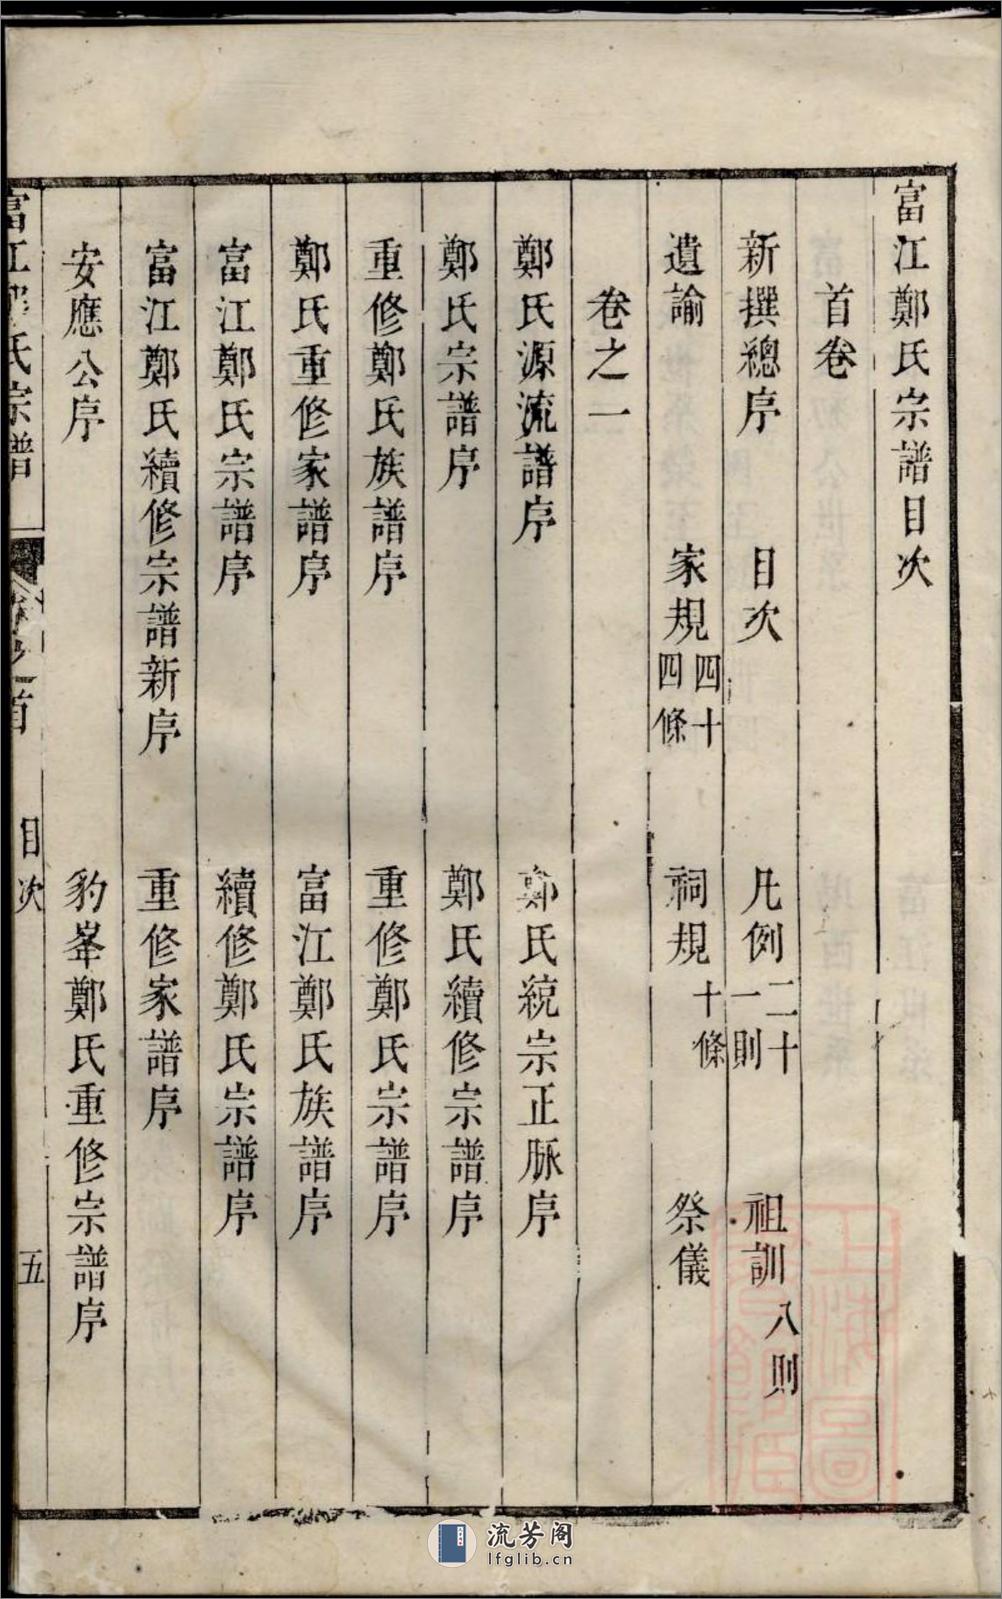 富江鄭氏宗譜目次
首卷
新撰總序 目次 凡例二十一則 祖訓八則
遺諭 家規四十四條 祠規十條 祭儀
卷之一
鄭氏源流譜序 鄭氏統宗正脈序
鄭氏宗譜序 鄭氏續修宗譜序
重修鄭氏族譜序 重修鄭氏宗譜序
鄭氏重修家譜序 富江鄭氏族譜序
富江鄭氏宗譜序 續修鄭氏宗譜序
富江鄭氏續修宗譜新序 重修家譜序
安應公序 豹峯鄭氏重修宗譜序
富江鄭氏宗譜 首 目次 五
流芳阁
lfglib.cn